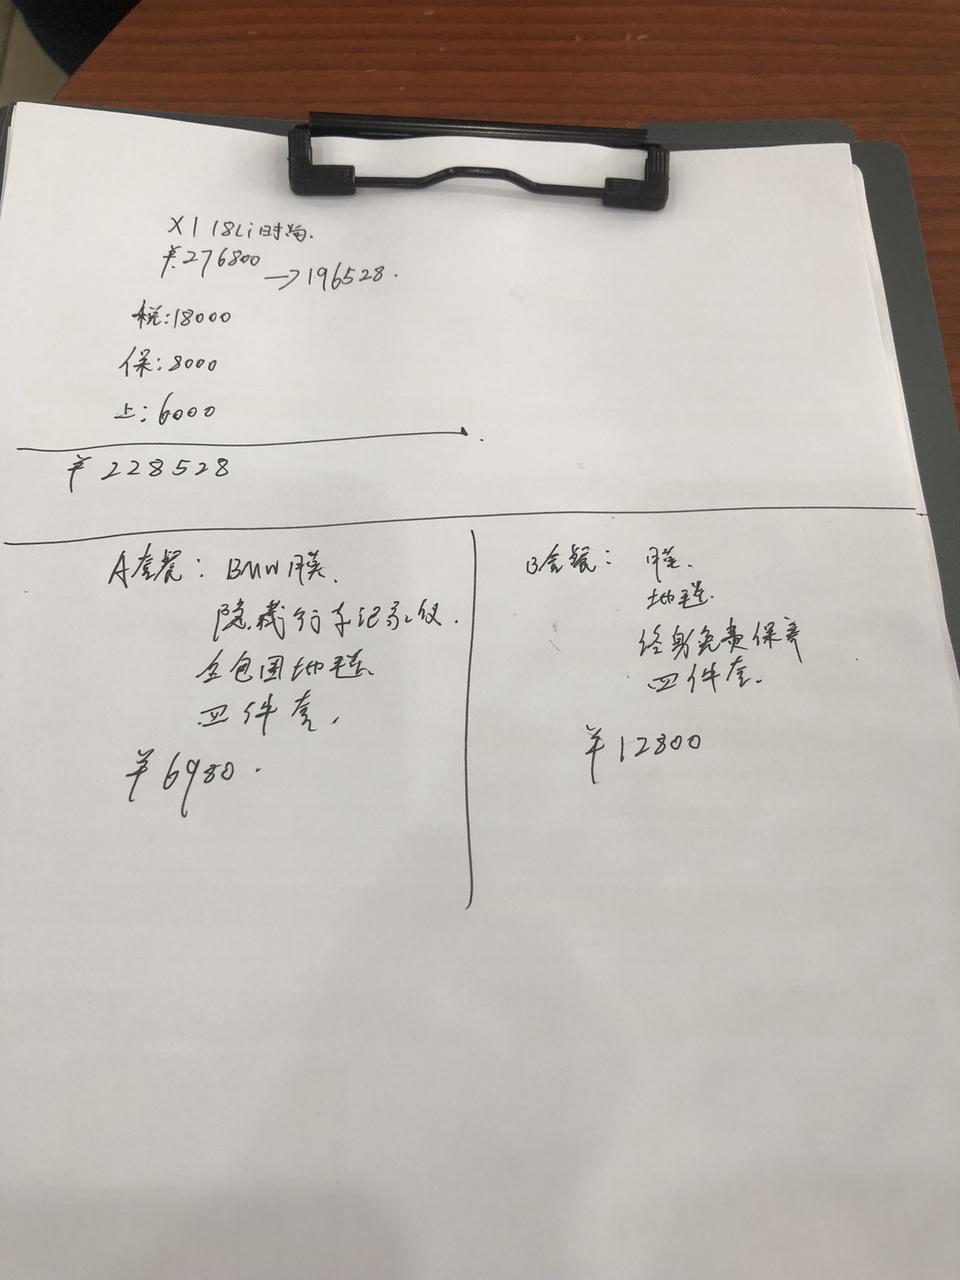 X1 18Li时尚.
¥276800
→196528.
税:18000
保:8000
上:6000
¥228528
A套餐: BMW膜.
隐藏行车记录仪.
全包围地毯.
四件套.
¥6980.
B套餐: 膜.
地毯.
终身免费保养
四件套.
¥12800